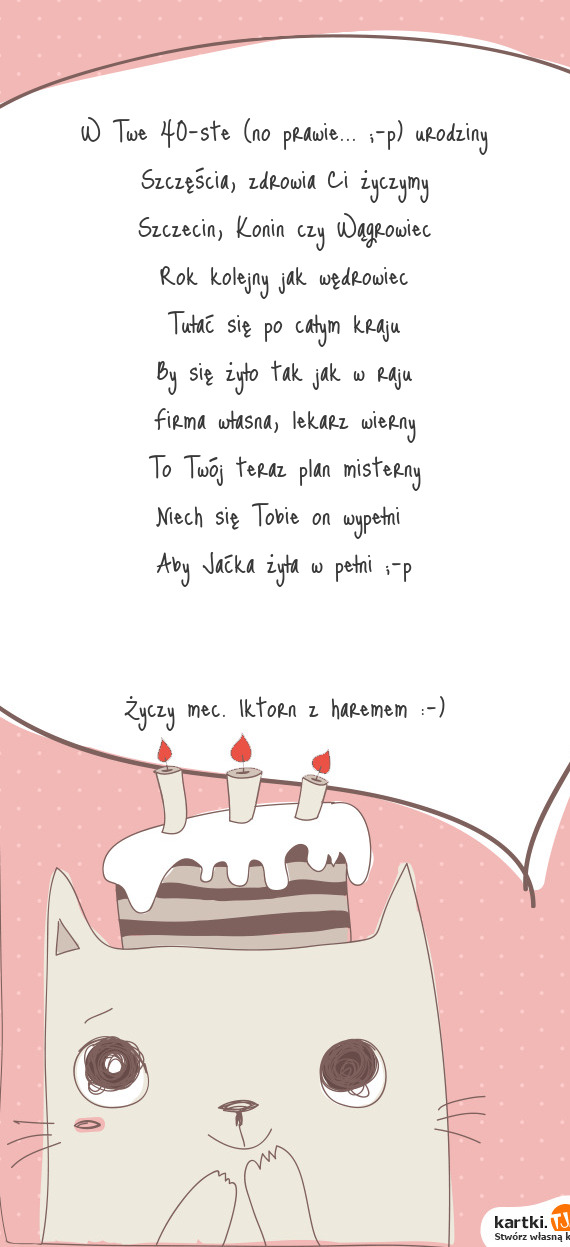 W Twe 40-ste (no prawie... ;-p) urodziny
Szczęścia, zdrowia Ci życzymy
Szczecin, Konin czy Wągrowiec
Rok kolejny jak wędrowiec
Tułać się po całym kraju
By się żyło tak jak w raju
Firma własna, lekarz wierny
To Twój teraz plan misterny
Niech się Tobie on wypełni
Aby Jaćka żyła w pełni ;-p
Życzy mec. Iktorn z haremem :-)
kartki.TJ
Stwórz własną k